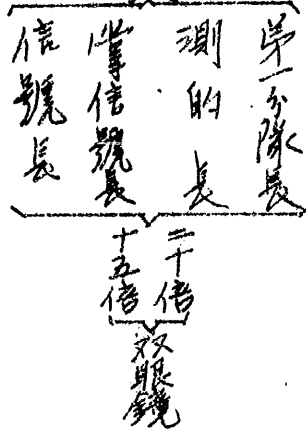 第一分隊長
測的長
掌信號長
信號長
二十倍
十五倍
双眼鏡